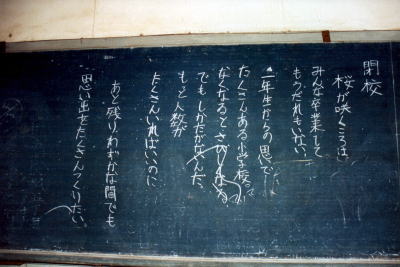 閉校
桜が咲くころは、
みんな卒業して
もうだれもいない。
一年生からの思いで
たくさんある小学校が
なくなるとさびしくなる。
でもしかたがないんだ。
もっと人数が
たくさんいればいいのに
あと残りわずかな間でも
思い出をたくさんつくりたい。